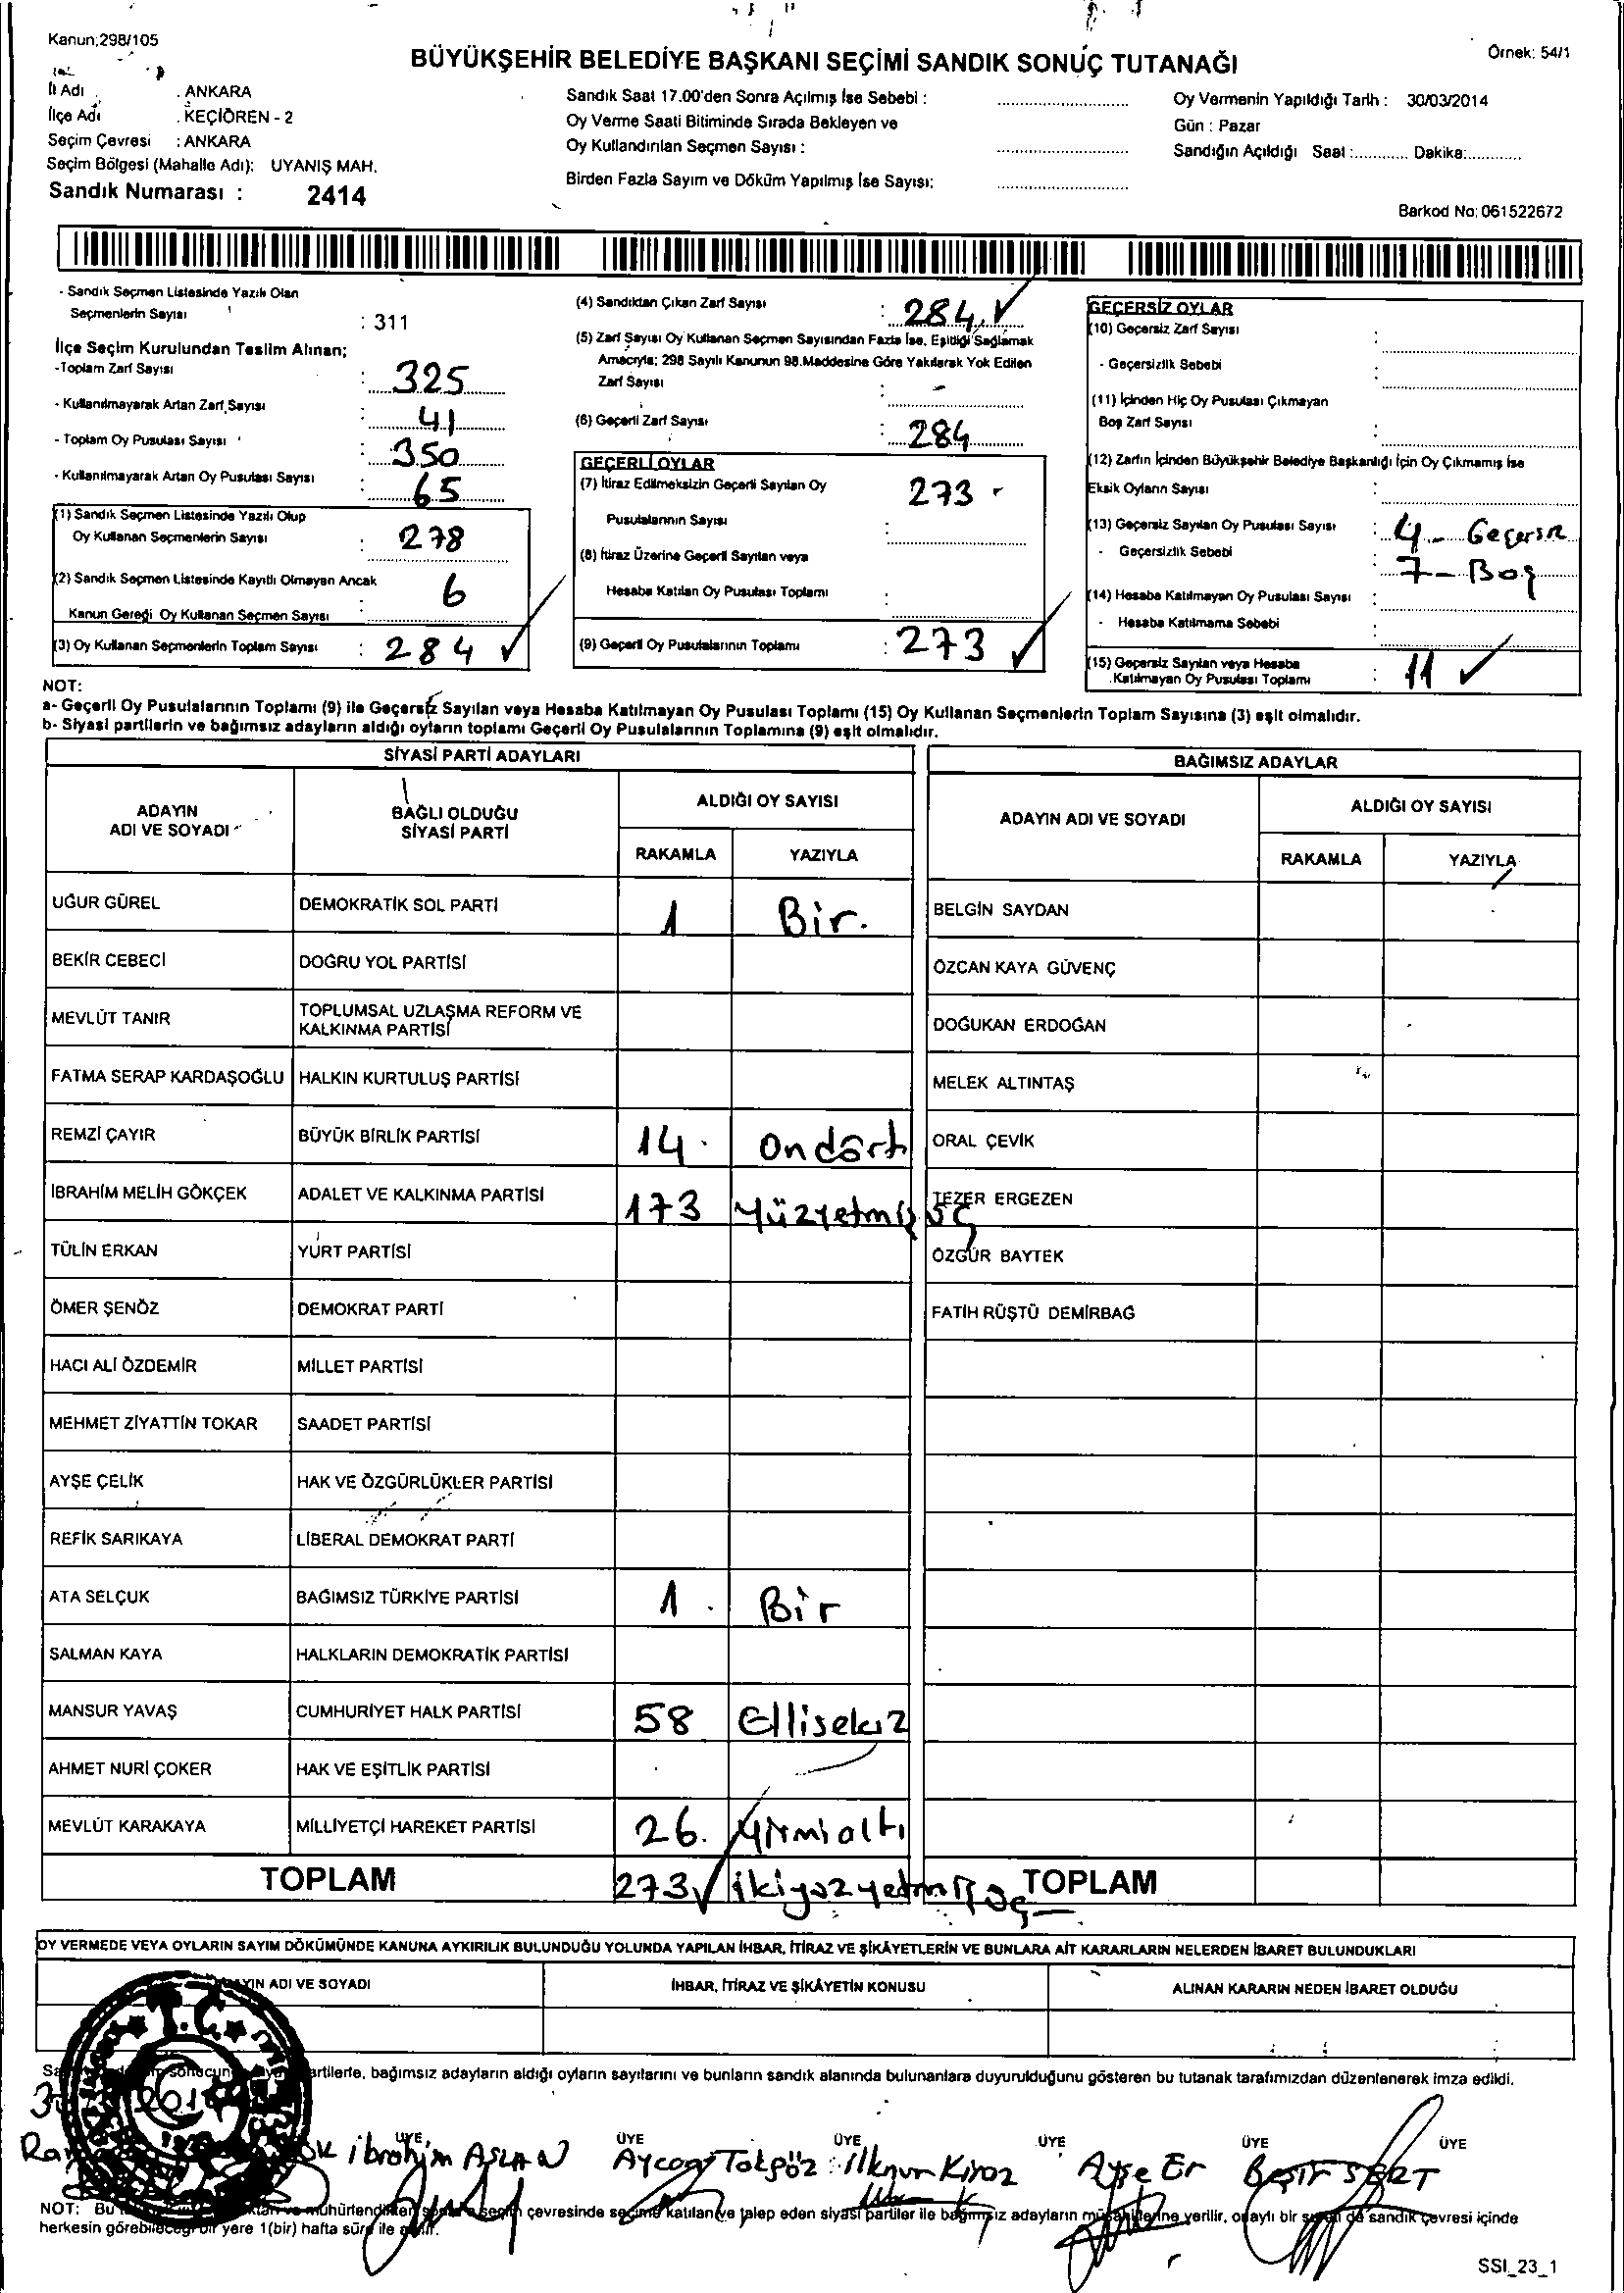 Kanun;298/105
BÜYÜKŞEHİR BELEDİYE BAŞKANI SEÇİMİ SANDIK SONUÇ TUTANAĞI
Örnek: 54/1
İl Adı : ANKARA
İlçe Adı : KEÇİÖREN - 2
Seçim Çevresi : ANKARA
Seçim Bölgesi (Mahalle Adı): UYANIŞ MAH.
Sandık Numarası : 2414
Sandık Saat 17.00'den Sonra Açılmış İse Sebebi :
Oy Verme Saati Bitiminde Sırada Bekleyen ve
Oy Kullandırılan Seçmen Sayısı :
Birden Fazla Sayım ve Döküm Yapılmış İse Sayısı:
Oy Vermenin Yapıldığı Tarih : 30/03/2014
Gün : Pazar
Sandığın Açıldığı Saat :............ Dakika:............
Barkod No: 061522672
- Sandık Seçmen Listesinde Yazılı Olan
Seçmenlerin Sayısı : 311
İlçe Seçim Kurulundan Teslim Alınan;
-Toplam Zarf Sayısı : 325
- Kullanılmayarak Artan Zarf Sayısı : 41
- Toplam Oy Pusulası Sayısı : 350
- Kullanılmayarak Artan Oy Pusulası Sayısı : 65
(1) Sandık Seçmen Listesinde Yazılı Olup
Oy Kullanan Seçmenlerin Sayısı : 278
(2) Sandık Seçmen Listesinde Kayıtlı Olmayan Ancak
Kanun Gereği Oy Kullanan Seçmen Sayısı : 6
(3) Oy Kullanan Seçmenlerin Toplam Sayısı : 284
(4) Sandıktan Çıkan Zarf Sayısı : 284
(5) Zarf Sayısı Oy Kullanan Seçmen Sayısından Fazla İse, Eşitliği Sağlamak
Amacıyla; 298 Sayılı Kanunun 98.Maddesine Göre Yakılarak Yok Edilen
Zarf Sayısı : -
(6) Geçerli Zarf Sayısı : 284
GEÇERLİ OYLAR
(7) İtiraz Edilmeksizin Geçerli Sayılan Oy 273
Pusulalarının Sayısı :
(8) İtiraz Üzerine Geçerli Sayılan veya
Hesaba Katılan Oy Pusulası Toplamı :
(9) Geçerli Oy Pusulalarının Toplamı : 273
GEÇERSİZ OYLAR
(10) Geçersiz Zarf Sayısı :
- Geçersizlik Sebebi :
(11) İçinden Hiç Oy Pusulası Çıkmayan
Boş Zarf Sayısı :
(12) Zarfın İçinden Büyükşehir Belediye Başkanlığı İçin Oy Çıkmamış İse
Eksik Oyların Sayısı :
(13) Geçersiz Sayılan Oy Pusulası Sayısı : 4 - Geçersiz
- Geçersizlik Sebebi : 7 - Boş
(14) Hesaba Katılmayan Oy Pusulası Sayısı :
- Hesaba Katılmama Sebebi :
(15) Geçersiz Sayılan veya Hesaba
Katılmayan Oy Pusulası Toplamı : 11
NOT:
a- Geçerli Oy Pusulalarının Toplamı (9) ile Geçersiz Sayılan veya Hesaba Katılmayan Oy Pusulası Toplamı (15) Oy Kullanan Seçmenlerin Toplam Sayısına (3) eşit olmalıdır.
b- Siyasi partilerin ve bağımsız adayların aldığı oyların toplamı Geçerli Oy Pusulalarının Toplamına (9) eşit olmalıdır.
SİYASİ PARTİ ADAYLARI
ADAYIN ADI VE SOYADI
BAĞLI OLDUĞU SİYASİ PARTİ
ALDIĞI OY SAYISI
RAKAMLA YAZIYLA
UĞUR GÜREL DEMOKRATİK SOL PARTİ 1 Bir.
BEKİR CEBECİ DOĞRU YOL PARTİSİ
MEVLÜT TANIR TOPLUMSAL UZLAŞMA REFORM VE KALKINMA PARTİSİ
FATMA SERAP KARDAŞOĞLU HALKIN KURTULUŞ PARTİSİ
REMZİ ÇAYIR BÜYÜK BİRLİK PARTİSİ 14 Ondört
İBRAHİM MELİH GÖKÇEK ADALET VE KALKINMA PARTİSİ 173 Yüzyetmişüç
TÜLİN ERKAN YURT PARTİSİ
ÖMER ŞENÖZ DEMOKRAT PARTİ
HACI ALİ ÖZDEMİR MİLLET PARTİSİ
MEHMET ZİYATTİN TOKAR SAADET PARTİSİ
AYŞE ÇELİK HAK VE ÖZGÜRLÜKLER PARTİSİ
REFİK SARIKAYA LİBERAL DEMOKRAT PARTİ
ATA SELÇUK BAĞIMSIZ TÜRKİYE PARTİSİ 1 Bir
SALMAN KAYA HALKLARIN DEMOKRATİK PARTİSİ
MANSUR YAVAŞ CUMHURİYET HALK PARTİSİ 58 Ellisekiz
AHMET NURİ ÇOKER HAK VE EŞİTLİK PARTİSİ
MEVLÜT KARAKAYA MİLLİYETÇİ HAREKET PARTİSİ 26. Yirmialtı
TOPLAM 273 ikiyüzyetmişüç
BAĞIMSIZ ADAYLAR
ADAYIN ADI VE SOYADI
ALDIĞI OY SAYISI
RAKAMLA YAZIYLA
BELGİN SAYDAN
ÖZCAN KAYA GÜVENÇ
DOĞUKAN ERDOĞAN
MELEK ALTINTAŞ
ORAL ÇEVİK
TEZER ERGEZEN
ÖZGÜR BAYTEK
FATİH RÜŞTÜ DEMİRBAĞ
TOPLAM
OY VERMEDE VEYA OYLARIN SAYIM DÖKÜMÜNDE KANUNA AYKIRILIK BULUNDUĞU YOLUNDA YAPILAN İHBAR, İTİRAZ VE ŞİKÂYETLERİN VE BUNLARA AİT KARARLARIN NELERDEN İBARET BULUNDUKLARI
ADI VE SOYADI
İHBAR, İTİRAZ VE ŞİKÂYETİN KONUSU
ALINAN KARARIN NEDEN İBARET OLDUĞU
T.C.
bağımsız adayların aldığı oyların sayılarını ve bunların sandık alanında bulunanlara duyurulduğunu gösteren bu tutanak tarafımızdan düzenlenerek imza edildi.
ÜYE ÜYE ÜYE ÜYE ÜYE ÜYE
İbrahim ASLAN Aycan Tokgöz İlknur Kiraz Ayşe Er Beşir SERT
NOT: Bu seçim çevresinde seçime katılan ve talep eden siyasi partiler ile bağımsız adayların müşahitlerine verilir, onaylı bir sureti de sandık çevresi içinde
herkesin görebileceği bir yere 1(bir) hafta süre ile asılır.
SSI_23_1